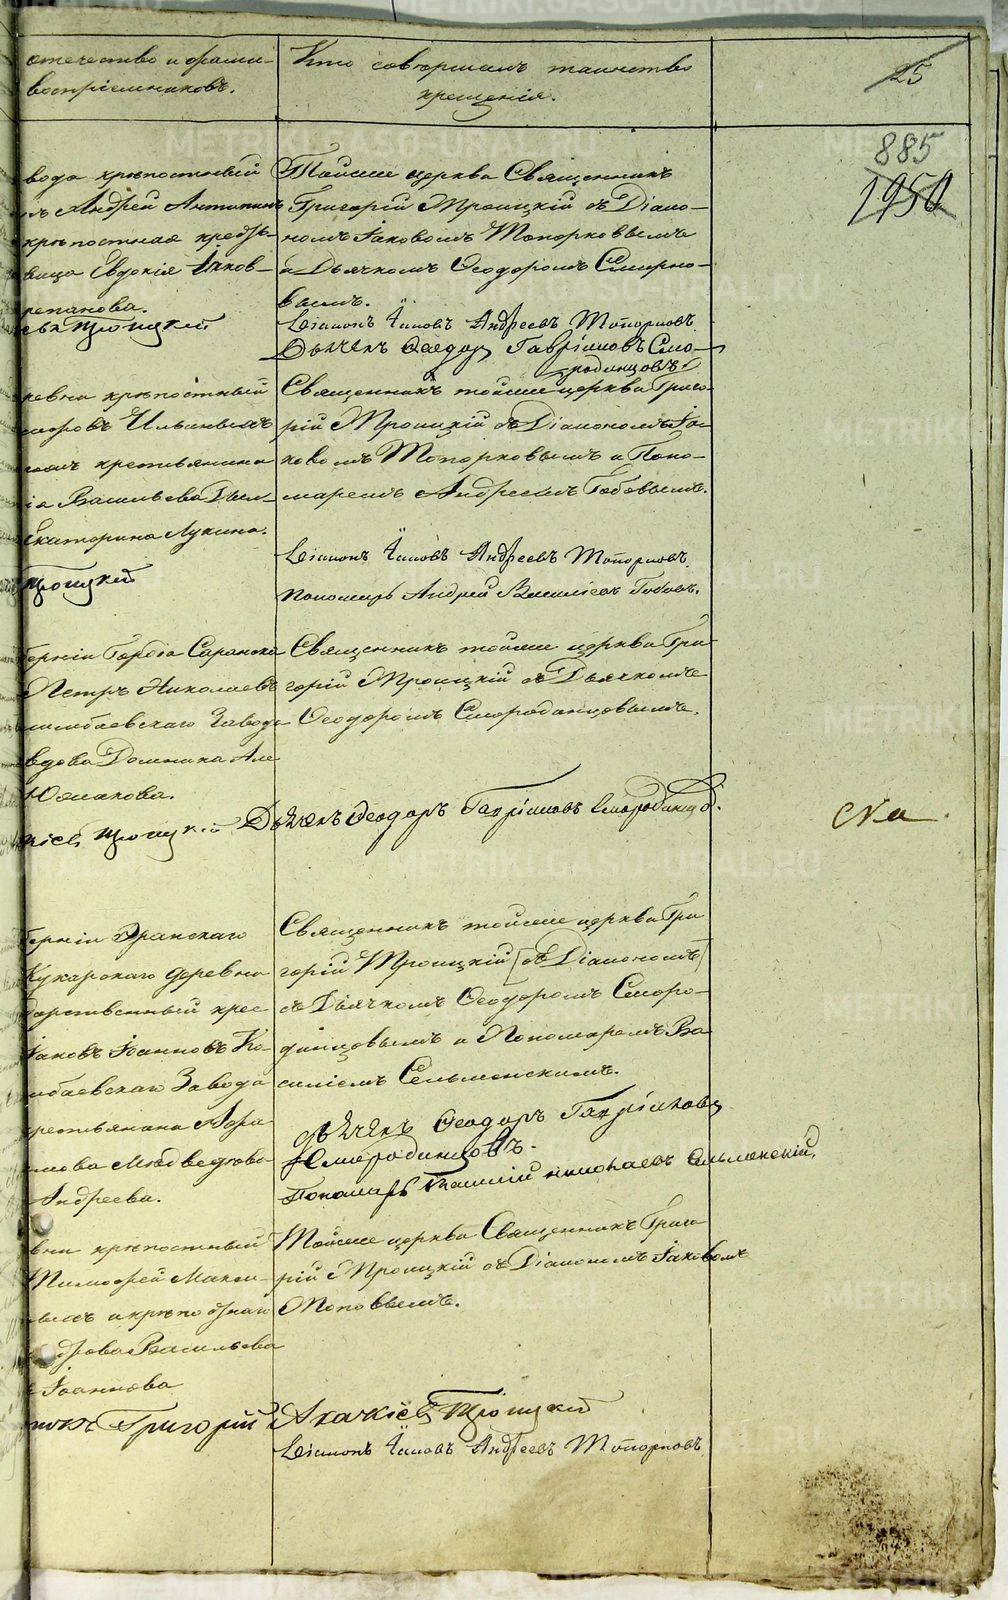 отечество и фами-
воспріемниковъ.
Кто совершалъ таинство
крещенія.
25
885
1950
вода крѣпостный
Андрей Антипинъ
крѣпостная кресть-
вица Евдокія Іаков-
репанова.
Троицкій
Тойже церкви Священникъ
Григорій Троицкій съ Діако-
номъ Іаковомъ Топорковымъ
и Дьячкомъ Ѳеодоромъ Смирно-
вымъ.
Діаконъ Іаковъ Андреевъ Топорковъ
Дьячекъ Ѳеодоръ Гавріиловъ Смо-
родинцовъ
ревни крѣпостный
Ильиныхъ
крестьянина
Васильева
Екатерина Лукина.
Троицкій
Священникъ тойже церкви Григо-
рій Троицкій съ Діакономъ Іа-
ковомъ Топорковымъ и Поно-
маремъ Андреемъ Бабовымъ.
Діаконъ Іаковъ Андреевъ Топорковъ.
Пономарь Андрей Васильевъ Бабовъ.
берніи Города Саранска
Петръ Николаевъ
лимбаевскаго Завода
вдова Домника Але
Юмакова.
Троицкій
Священникъ тойже церкви Гри
горій Троицкій съ Дьячкомъ
Ѳеодоромъ Смородинцовымъ.
Дьячекъ Ѳеодоръ Гавріиловъ Смородинцовъ.
берніи Яранскаго
Кукарскаго деревни
дарственный крес
Іаковъ Іоанновъ Ко-
мбаевскаго Завода
крестьянина
Медведкова
Андреева.
Священникъ тойже церкви Гри
горій Троицкій [съ Діакономъ]
съ Дьячкомъ Ѳеодоромъ Сморо-
динцовымъ и Пономаремъ Ва
силіемъ Сельменскимъ.
Дьячекъ Ѳеодоръ Гавріиловъ
Смородинцовъ.
Пономарь Василій Николаевъ Сельменскій,
вни крѣпостный
Тимофей Макси-
Васильева
Іоаннова
Тойже церкви Священникъ Григо
рій Троицкій съ Діакономъ Іаковомъ
Топорковымъ.
Григорій Акакіевъ Троицкій
Діаконъ Іаковъ Андреевъ Топорковъ
METRIKI.GASO-URAL.RU